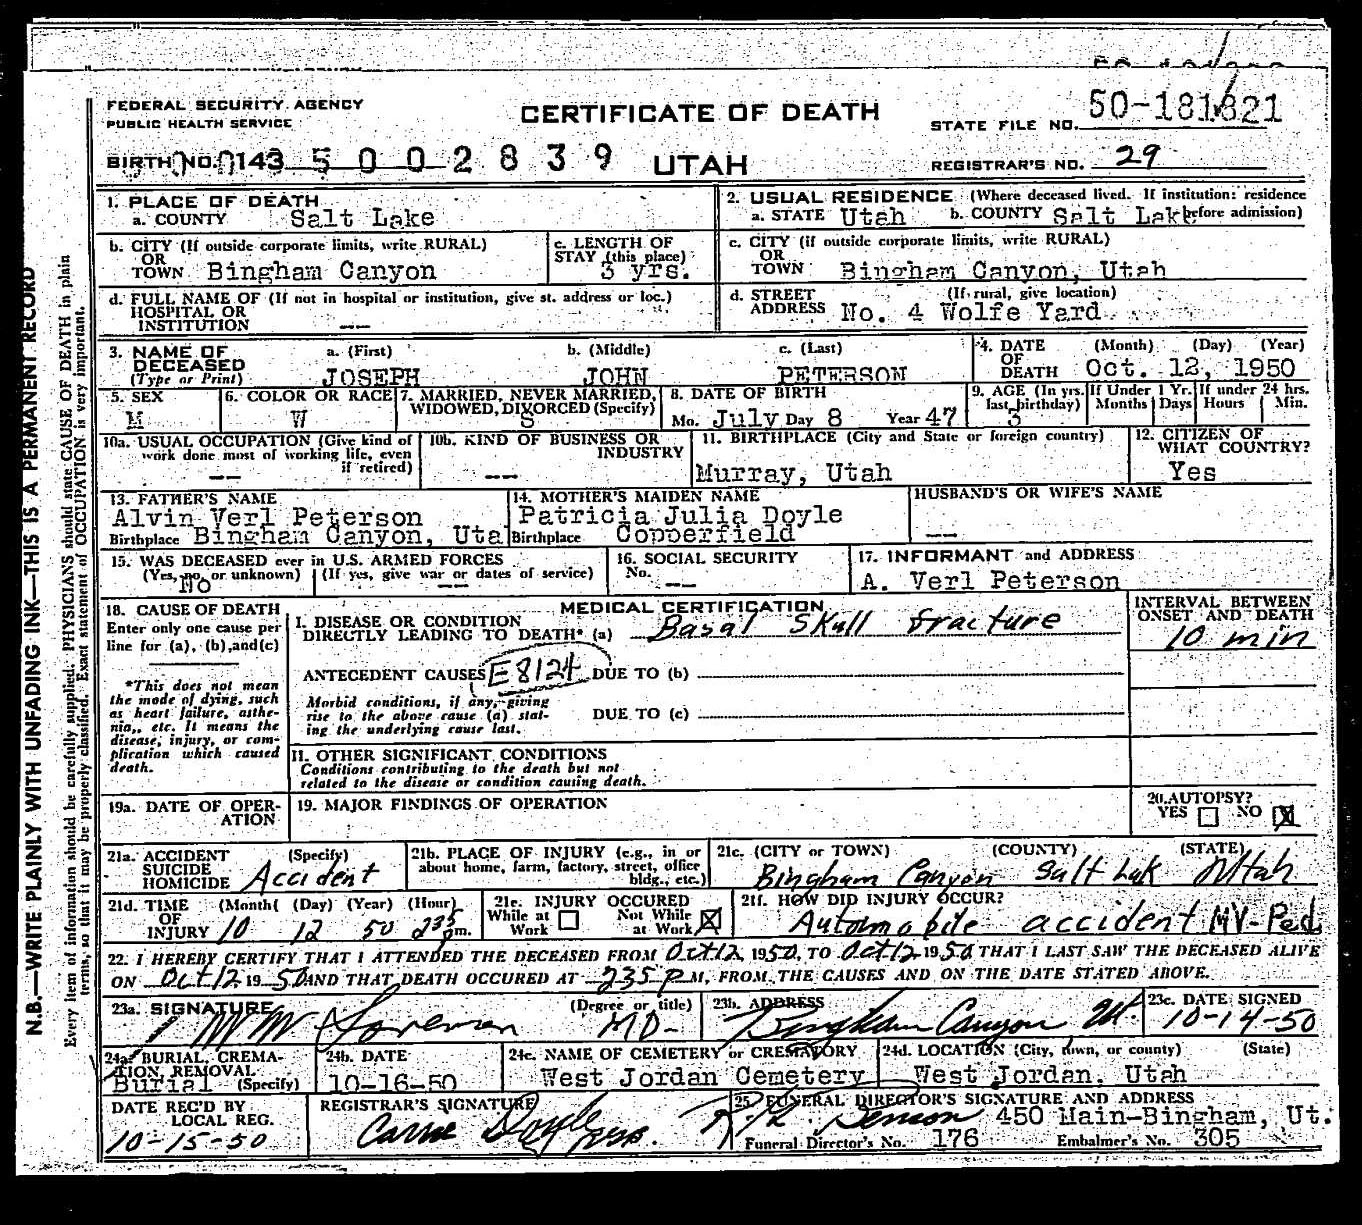 FEDERAL SECURITY AGENCY
PUBLIC HEALTH SERVICE
CERTIFICATE OF DEATH
STATE FILE NO. 50-181821
BIRTH NO. 143 5 0 0 2 8 3 9 UTAH
REGISTRAR'S NO. 29
1. PLACE OF DEATH
a. COUNTY Salt Lake
2. USUAL RESIDENCE (Where deceased lived. If institution: residence before admission)
a. STATE Utah b. COUNTY Salt Lake
b. CITY (If outside corporate limits, write RURAL)
OR
TOWN Bingham Canyon
c. LENGTH OF
STAY (this place)
3 yrs.
c. CITY (if outside corporate limits, write RURAL)
OR
TOWN Bingham Canyon, Utah
d. FULL NAME OF (If not in hospital or institution, give st. address or loc.)
HOSPITAL OR
INSTITUTION --
d. STREET (If rural, give location)
ADDRESS No. 4 Wolfe Yard
3. NAME OF DECEASED
(Type or Print)
a. (First) b. (Middle) c. (Last)
JOSEPH JOHN PETERSON
4. DATE OF DEATH (Month) (Day) (Year)
Oct. 12, 1950
5. SEX
M
6. COLOR OR RACE
W
7. MARRIED, NEVER MARRIED,
WIDOWED, DIVORCED (Specify)
S
8. DATE OF BIRTH
Mo. July Day 8 Year 47
9. AGE (In yrs.
last birthday)
3
If Under 1 Yr.
Months Days
If under 24 hrs.
Hours Min.
10a. USUAL OCCUPATION (Give kind of
work done most of working life, even
if retired)
--
10b. KIND OF BUSINESS OR
INDUSTRY
--
11. BIRTHPLACE (City and State or foreign country)
Murray, Utah
12. CITIZEN OF
WHAT COUNTRY?
Yes
13. FATHER'S NAME
Alvin Verl Peterson
Birthplace Bingham Canyon, Uta
14. MOTHER'S MAIDEN NAME
Patricia Julia Doyle
Birthplace Copperfield
HUSBAND'S OR WIFE'S NAME
--
15. WAS DECEASED ever in U.S. ARMED FORCES
(Yes, no, or unknown) (If yes, give war or dates of service)
No --
16. SOCIAL SECURITY
No. --
17. INFORMANT and ADDRESS
A. Verl Peterson
18. CAUSE OF DEATH
Enter only one cause per
line for (a), (b), and (c)
*This does not mean
the mode of dying, such
as heart failure, asthe-
nia,, etc. It means the
disease, injury, or com-
plication which caused
death.
MEDICAL CERTIFICATION
I. DISEASE OR CONDITION
DIRECTLY LEADING TO DEATH* (a) Basal Skull fracture
INTERVAL BETWEEN
ONSET AND DEATH
10 min
ANTECEDENT CAUSES E8124 DUE TO (b)
Morbid conditions, if any, giving
rise to the above cause (a) stat-
ing the underlying cause last.
DUE TO (c)
II. OTHER SIGNIFICANT CONDITIONS
Conditions contributing to the death but not
related to the disease or condition causing death.
19a. DATE OF OPER-
ATION
19. MAJOR FINDINGS OF OPERATION
20. AUTOPSY?
YES NO X
21a. ACCIDENT (Specify)
SUICIDE
HOMICIDE Accident
21b. PLACE OF INJURY (e.g., in or
about home, farm, factory, street, office
bldg., etc.)
21c. (CITY or TOWN) (COUNTY) (STATE)
Bingham Canyon Salt Lak Utah
21d. TIME OF INJURY (Month( (Day) (Year) (Hour)
10 12 50 235 pm.
21e. INJURY OCCURED
While at Work Not While at Work X
21f. HOW DID INJURY OCCUR?
Automobile accident MV-Ped
22. I HEREBY CERTIFY THAT I ATTENDED THE DECEASED FROM Oct 12 1950, TO Oct 12 1950 THAT I LAST SAW THE DECEASED ALIVE
ON Oct 12 1950 AND THAT DEATH OCCURED AT 235 P M, FROM THE CAUSES AND ON THE DATE STATED ABOVE.
23a. SIGNATURE (Degree or title)
MD-
23b. ADDRESS
Bingham Canyon Ut.
23c. DATE SIGNED
10-14-50
24a. BURIAL, CREMA-
TION, REMOVAL
Burial (Specify)
24b. DATE
10-16-50
24c. NAME OF CEMETERY or CREMATORY
West Jordan Cemetery
24d. LOCATION (City, town, or county) (State)
West Jordan, Utah
DATE REC'D BY
LOCAL REG.
10-15-50
REGISTRAR'S SIGNATURE
Doyle
25. FUNERAL DIRECTOR'S SIGNATURE AND ADDRESS
450 Main-Bingham, Ut.
Funeral Director's No. 176 Embalmer's No. 305
N.B.—WRITE PLAINLY WITH UNFADING INK—THIS IS A PERMANENT RECORD
Every item of information should be carefully supplied. PHYSICIANS should state CAUSE OF DEATH in plain
terms, so that it may be properly classified. Exact statement of OCCUPATION is very important.